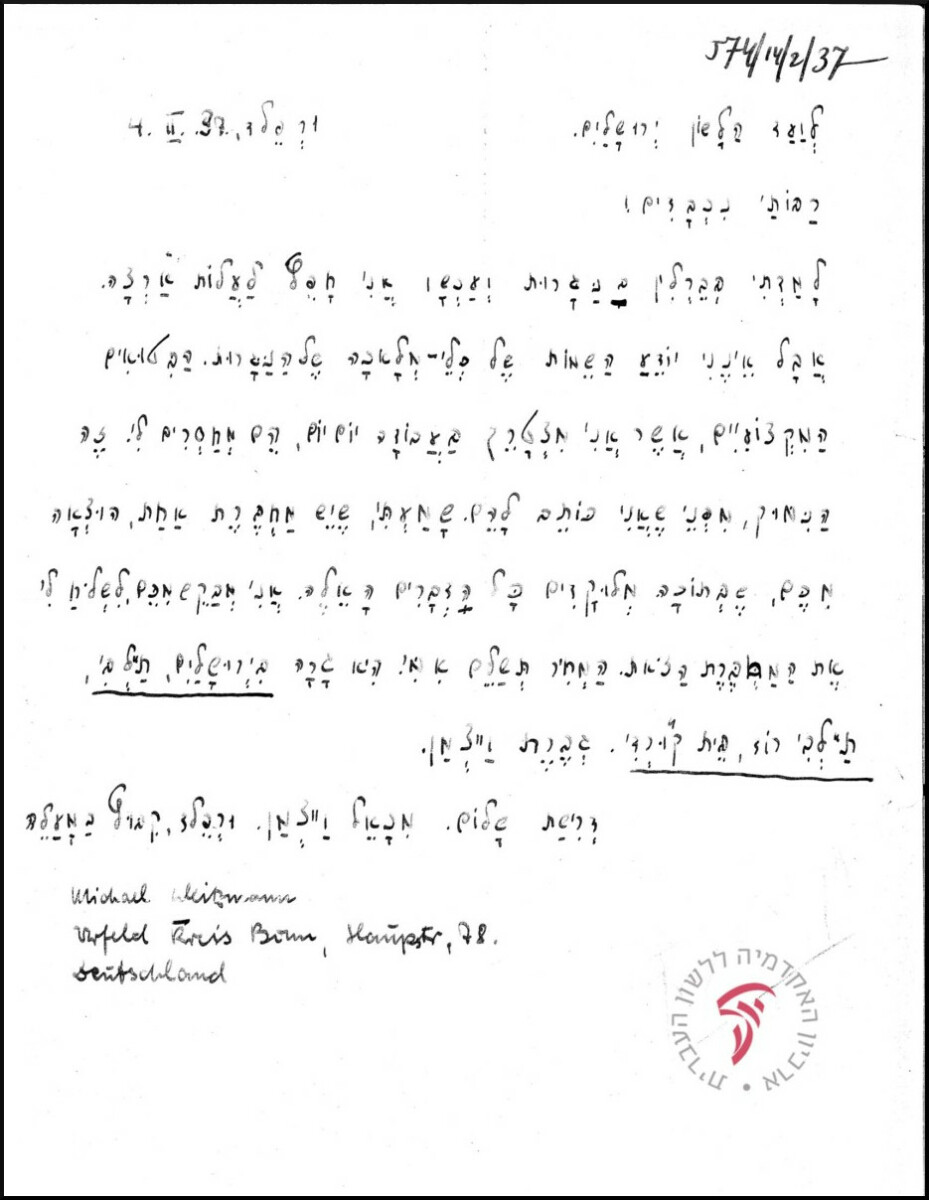 574/14/2/37
לְוַעַד הַלָּשׁוֹן יְרוּשָׁלַיִם. וּרְפֶלד, 4. II. 37.
רַבּוֹתַי נִכְבָּדִים!
לָמַדְתִּי בְּבֶּרְלִין בְּנַגָּרוּת וְעַכְשָׁו אֲנִי חָפֵץ לַעֲלוֹת אַרְצָה.
אֲבָל אֵינֶנִּי יוֹדֵעַ הַשֵּׁמוֹת שֶׁל כְּלֵי-מְלָאכָה שֶׁל הַנַּגָּרוּת. הַבִּטוּאִים
הַמִּקְצוֹעִיִּים, אֲשֶׁר אֲנִי מִצְטָרֵךְ בַּעֲבוֹדָה יוֹם יוֹם, הֵם מְחֻסָּרִים לִי. זֶה
הַנִּמּוּק, מִפְּנֵי שֶׁאֲנִי כּוֹתֵב לָהֶם. שָׁמַעְתִּי, שֶׁיֵּשׁ מַחְבֶּרֶת אַחַת, הוּצְאָה
מִכֶּם, שֶׁבְּתוֹכָהּ מְלוּקָּדִים כָּל הַדְּבָרִים הָאֵלֶּה. אֲנִי מְבַקֵּשׁ מִכֶּם, לִשְׁלִיחַ לִי
אֶת הַמַּחְבֶּרֶת הַזֹּאת. הַמְּחִיר תְּשַׁלֵּם אִמִּי. הִיא גָּרָה בִּירוּשָׁלַיִם, תַּלְבִּי,
תַּלְבִּי רוֹד, בֵּית קוּרְדִּי. גְּבֶרֶת וַיְיצְמַן.
דְּרִישַׁת שָׁלוֹם. מִכָאֵל וַיְיצְמַן. וּרְפֶלד, קִבּוּץ בַּמַּעֲלֶה
Michael Weitzmann
Urfeld Kreis Bonn, Hauptstr, 78.
Deutschland
ארכיון האקדמיה ללשון העברית